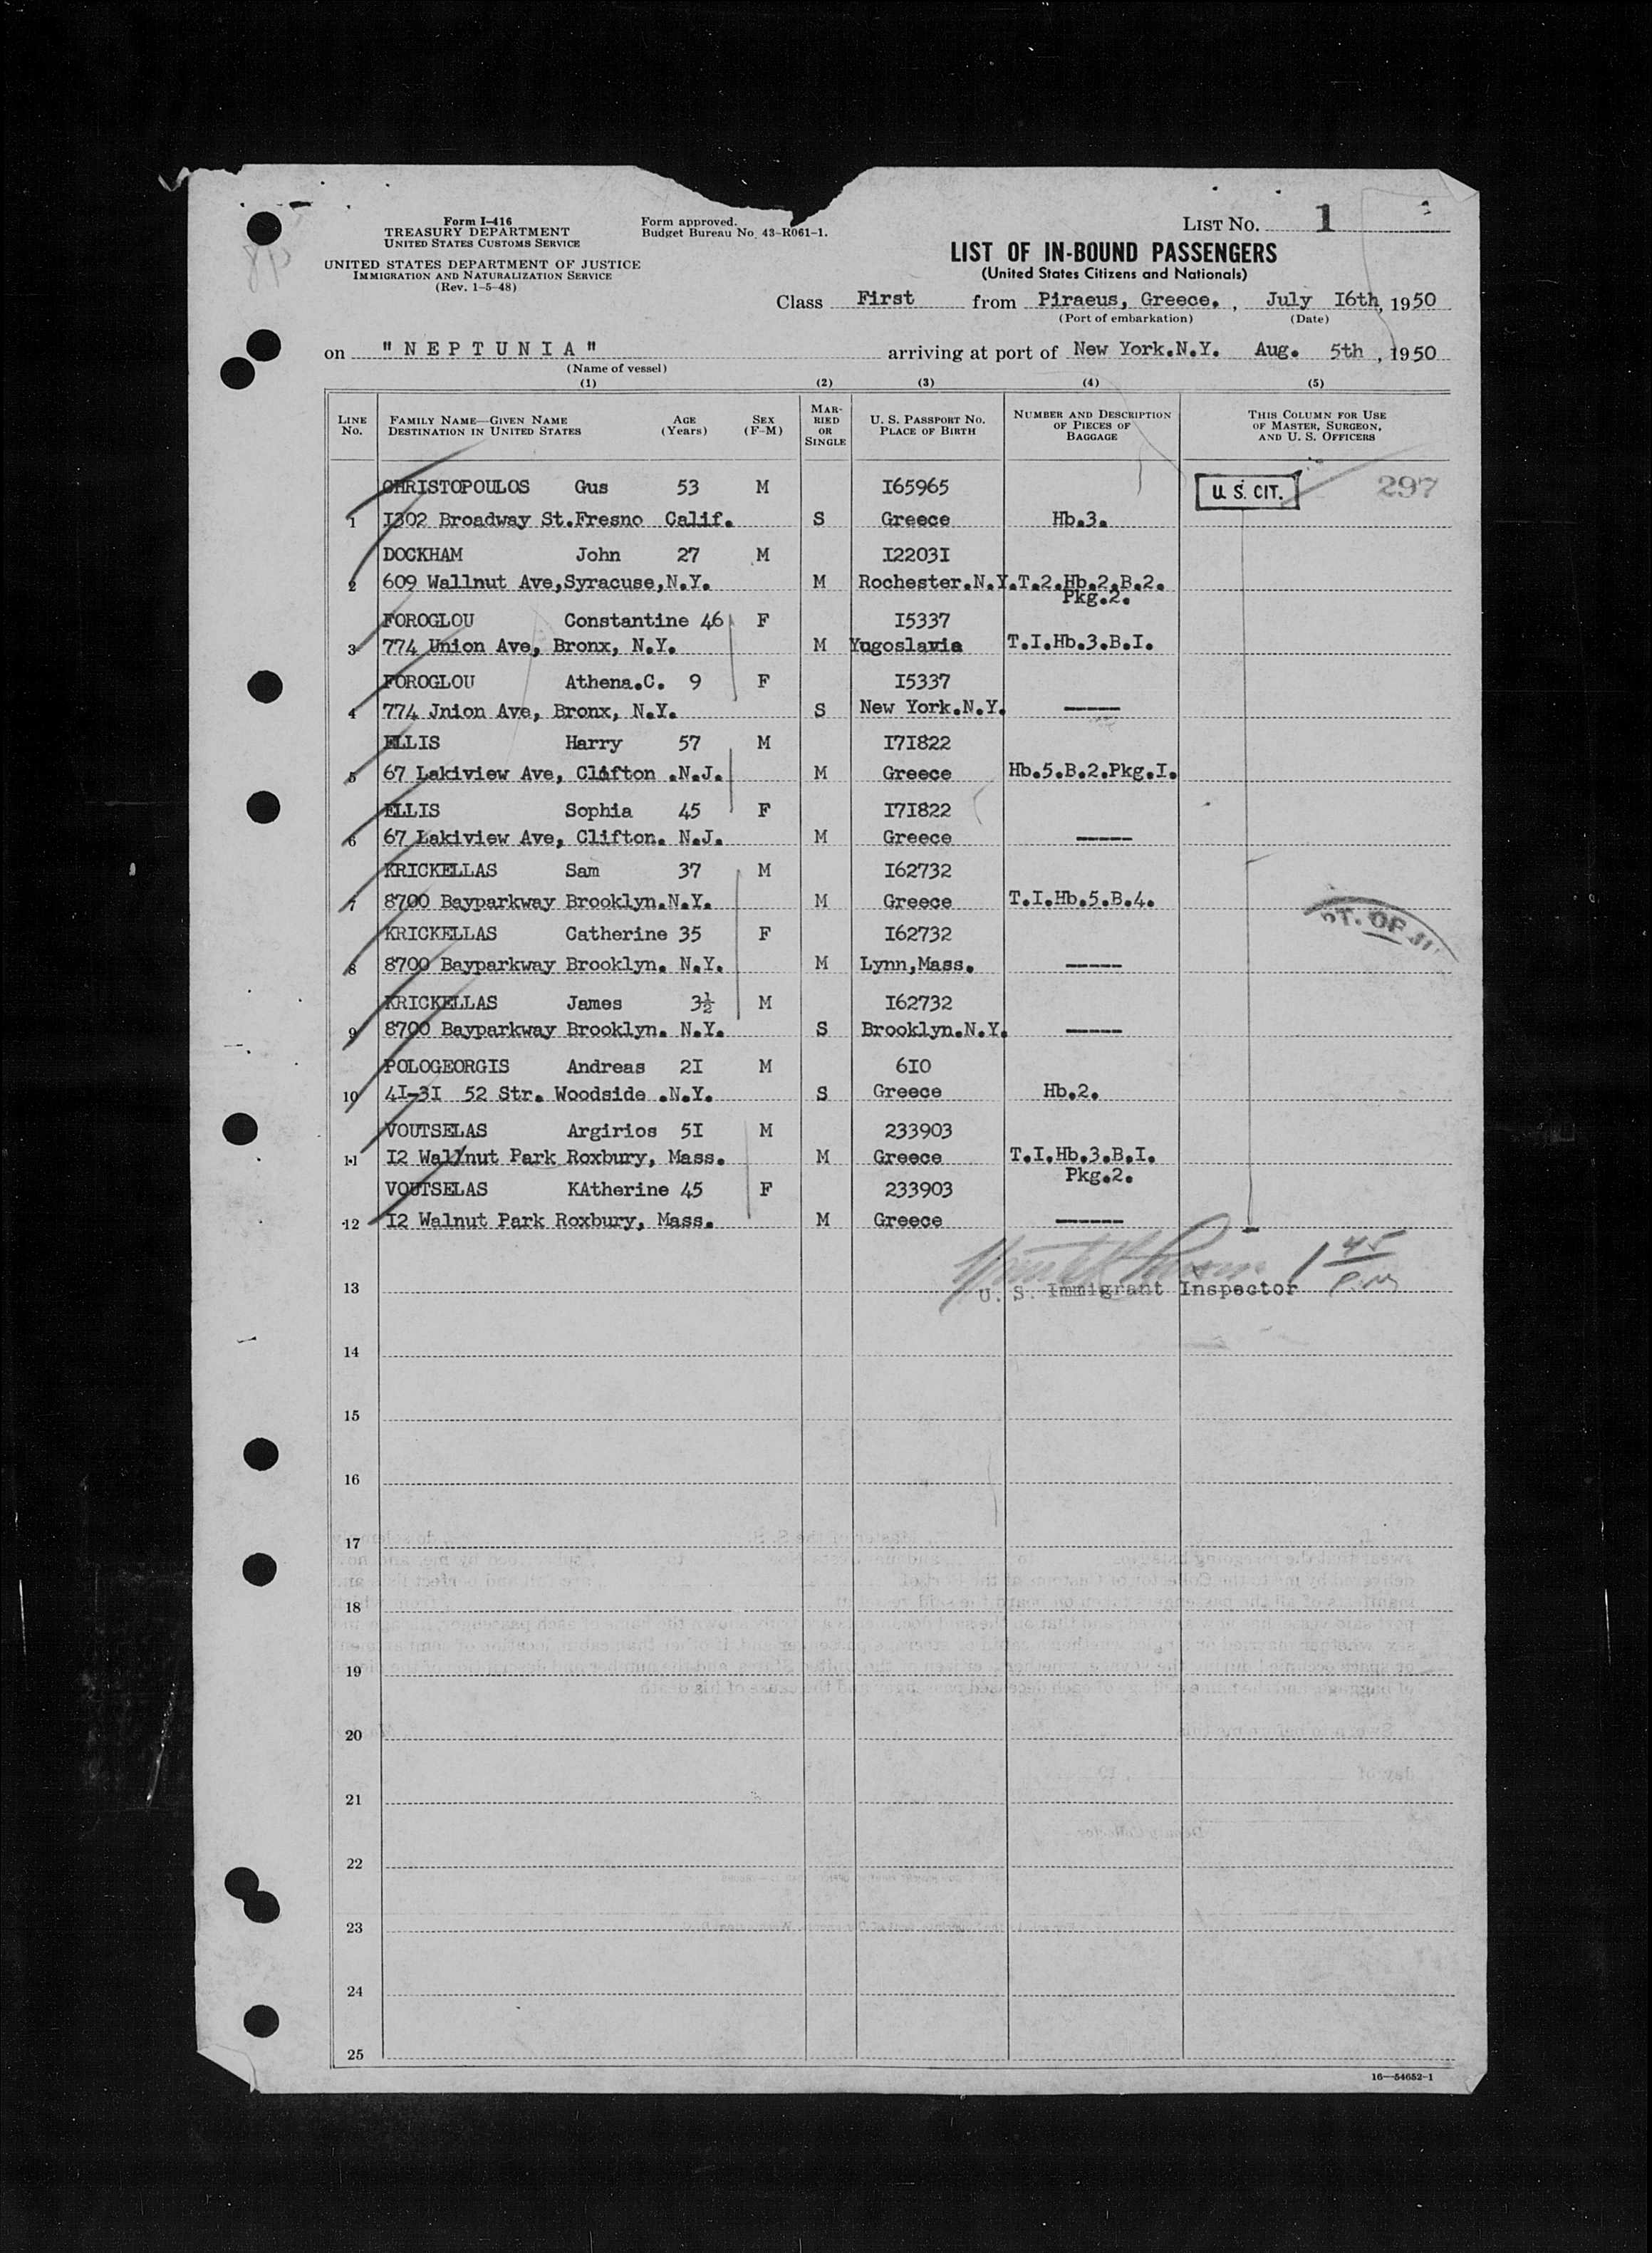 Form I-416
TREASURY DEPARTMENT
UNITED STATES CUSTOMS SERVICE
UNITED STATES DEPARTMENT OF JUSTICE
IMMIGRATION AND NATURALIZATION SERVICE
(Rev. 1-5-48)
Form approved.
Budget Bureau No. 43-R061-1.
LIST NO. 1
LIST OF IN-BOUND PASSENGERS
(United States Citizens and Nationals)
Class First from Piraeus, Greece. , July I6th, 1950
(Port of embarkation) (Date)
on "NEPTUNIA" arriving at port of New York.N.Y. Aug. 5th , 1950
(Name of vessel)
(1) (2) (3) (4) (5)
LINE NO. FAMILY NAME—GIVEN NAME DESTINATION IN UNITED STATES AGE (Years) SEX (F-M) MARRIED OR SINGLE U. S. PASSPORT NO. PLACE OF BIRTH NUMBER AND DESCRIPTION OF PIECES OF BAGGAGE THIS COLUMN FOR USE OF MASTER, SURGEON, AND U. S. OFFICERS
CHRISTOPOULOS Gus 53 M I65965 U. S. CIT. 297
1 I302 Broadway St.Fresno Calif. S Greece Hb.3.
DOCKHAM John 27 M I2203I
2 609 Wallnut Ave,Syracuse,N.Y. M Rochester.N.Y.T.2.Hb.2.B.2.
Pkg.2.
FOROGLOU Constantine 46 F I5337
3 774 Union Ave, Bronx, N.Y. M Yugoslavia T.I.Hb.3.B.I.
FOROGLOU Athena.C. 9 F I5337
4 774 Jnion Ave, Bronx, N.Y. S New York.N.Y. -----
ELLIS Harry 57 M I7I822
5 67 Lakiview Ave, Clifton .N.J. M Greece Hb.5.B.2.Pkg.I.
ELLIS Sophia 45 F I7I822
6 67 Lakiview Ave, Clifton. N.J. M Greece -----
KRICKELLAS Sam 37 M I62732
7 8700 Bayparkway Brooklyn.N.Y. M Greece T.I.Hb.5.B.4.
KRICKELLAS Catherine 35 F I62732
8 8700 Bayparkway Brooklyn. N.Y. M Lynn,Mass. -----
KRICKELLAS James 3½ M I62732
9 8700 Bayparkway Brooklyn. N.Y. S Brooklyn.N.Y. -----
POLOGEORGIS Andreas 2I M 6I0
10 4I-3I 52 Str. Woodside .N.Y. S Greece Hb.2.
VOUTSELAS Argirios 5I M 233903
11 I2 Wallnut Park Roxbury, Mass. M Greece T.I.Hb.3.B.I.
Pkg.2.
VOUTSELAS KAtherine 45 F 233903
12 I2 Walnut Park Roxbury, Mass. M Greece ------
1 45 P.M
13 U. S. Immigrant Inspector
14
15
16
17
18
19
20
21
22
23
24
25
16—54652-1